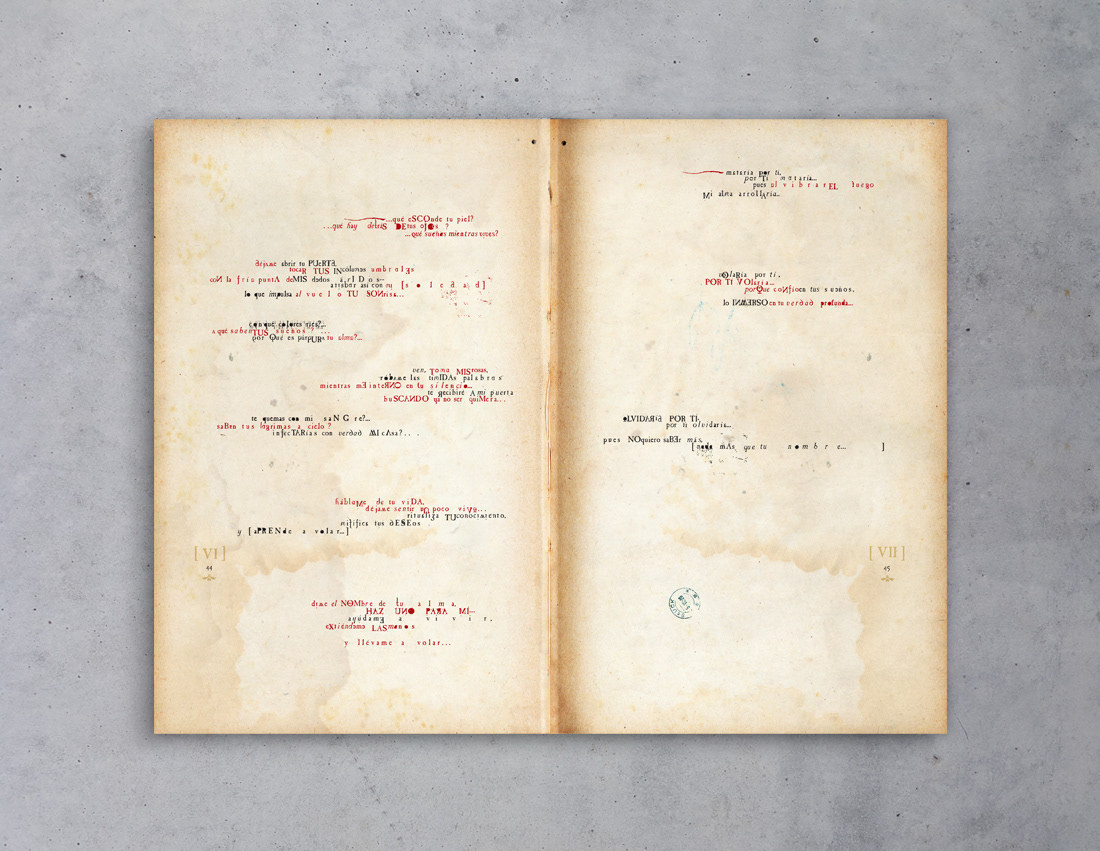 ...qué eSCOnde tu piel?
...qué hay detráS DEtus ojOs ?
...qué sueñas mientras vives?
déjame abrir tu PUeRTA,
tocaR TUS INcólumes umbralEs
coN la fria puntA deMIS dedos árIDos...
arribar así con tu [soledad]
lo que impulsa al vuelo TU SONrisa...
con qué colores ríes?...
a qué saben TUS sueños ? ...
por Qué es púrpURA tu alma?...
ven, Toma MISrosas,
róbame las timIDAs palabras
mientras mE inteRNO en tu silencio...
te Recibiré A mi puerta
buSCANDO ya no ser quiMera...
te quemas con mi saNGre?...
saBen tus lágrimas a cielo ?
infecTARías con verdad MI cAsa?...
háblaMe de tu viDA,
déjame sentir un poco vivo...
ritualiza TUconocimiento,
tus dESEos
y [aPRENde a volar...]
[ VI ]
44
dime el NOMbre de tu alma,
HAZ UNO PARA MÍ...
ayúdamE a vivir,
extiéndeme LASmanos
y llévame a volar...
mataría por ti,
por Ti mataría...
pues al vibrarEL luego
Mi alma arrollAría...
vOlaRía por ti,
POR TI VOlaría...
porQue coNfíoen tus sueños,
lo INMERSOen tu verdad profunda...
oLVIDARíA POR TI,
por ti olvidaría...
pues NOquiero saBEr más,
[nada mAs que tu nombre... ]
[ VII ]
45